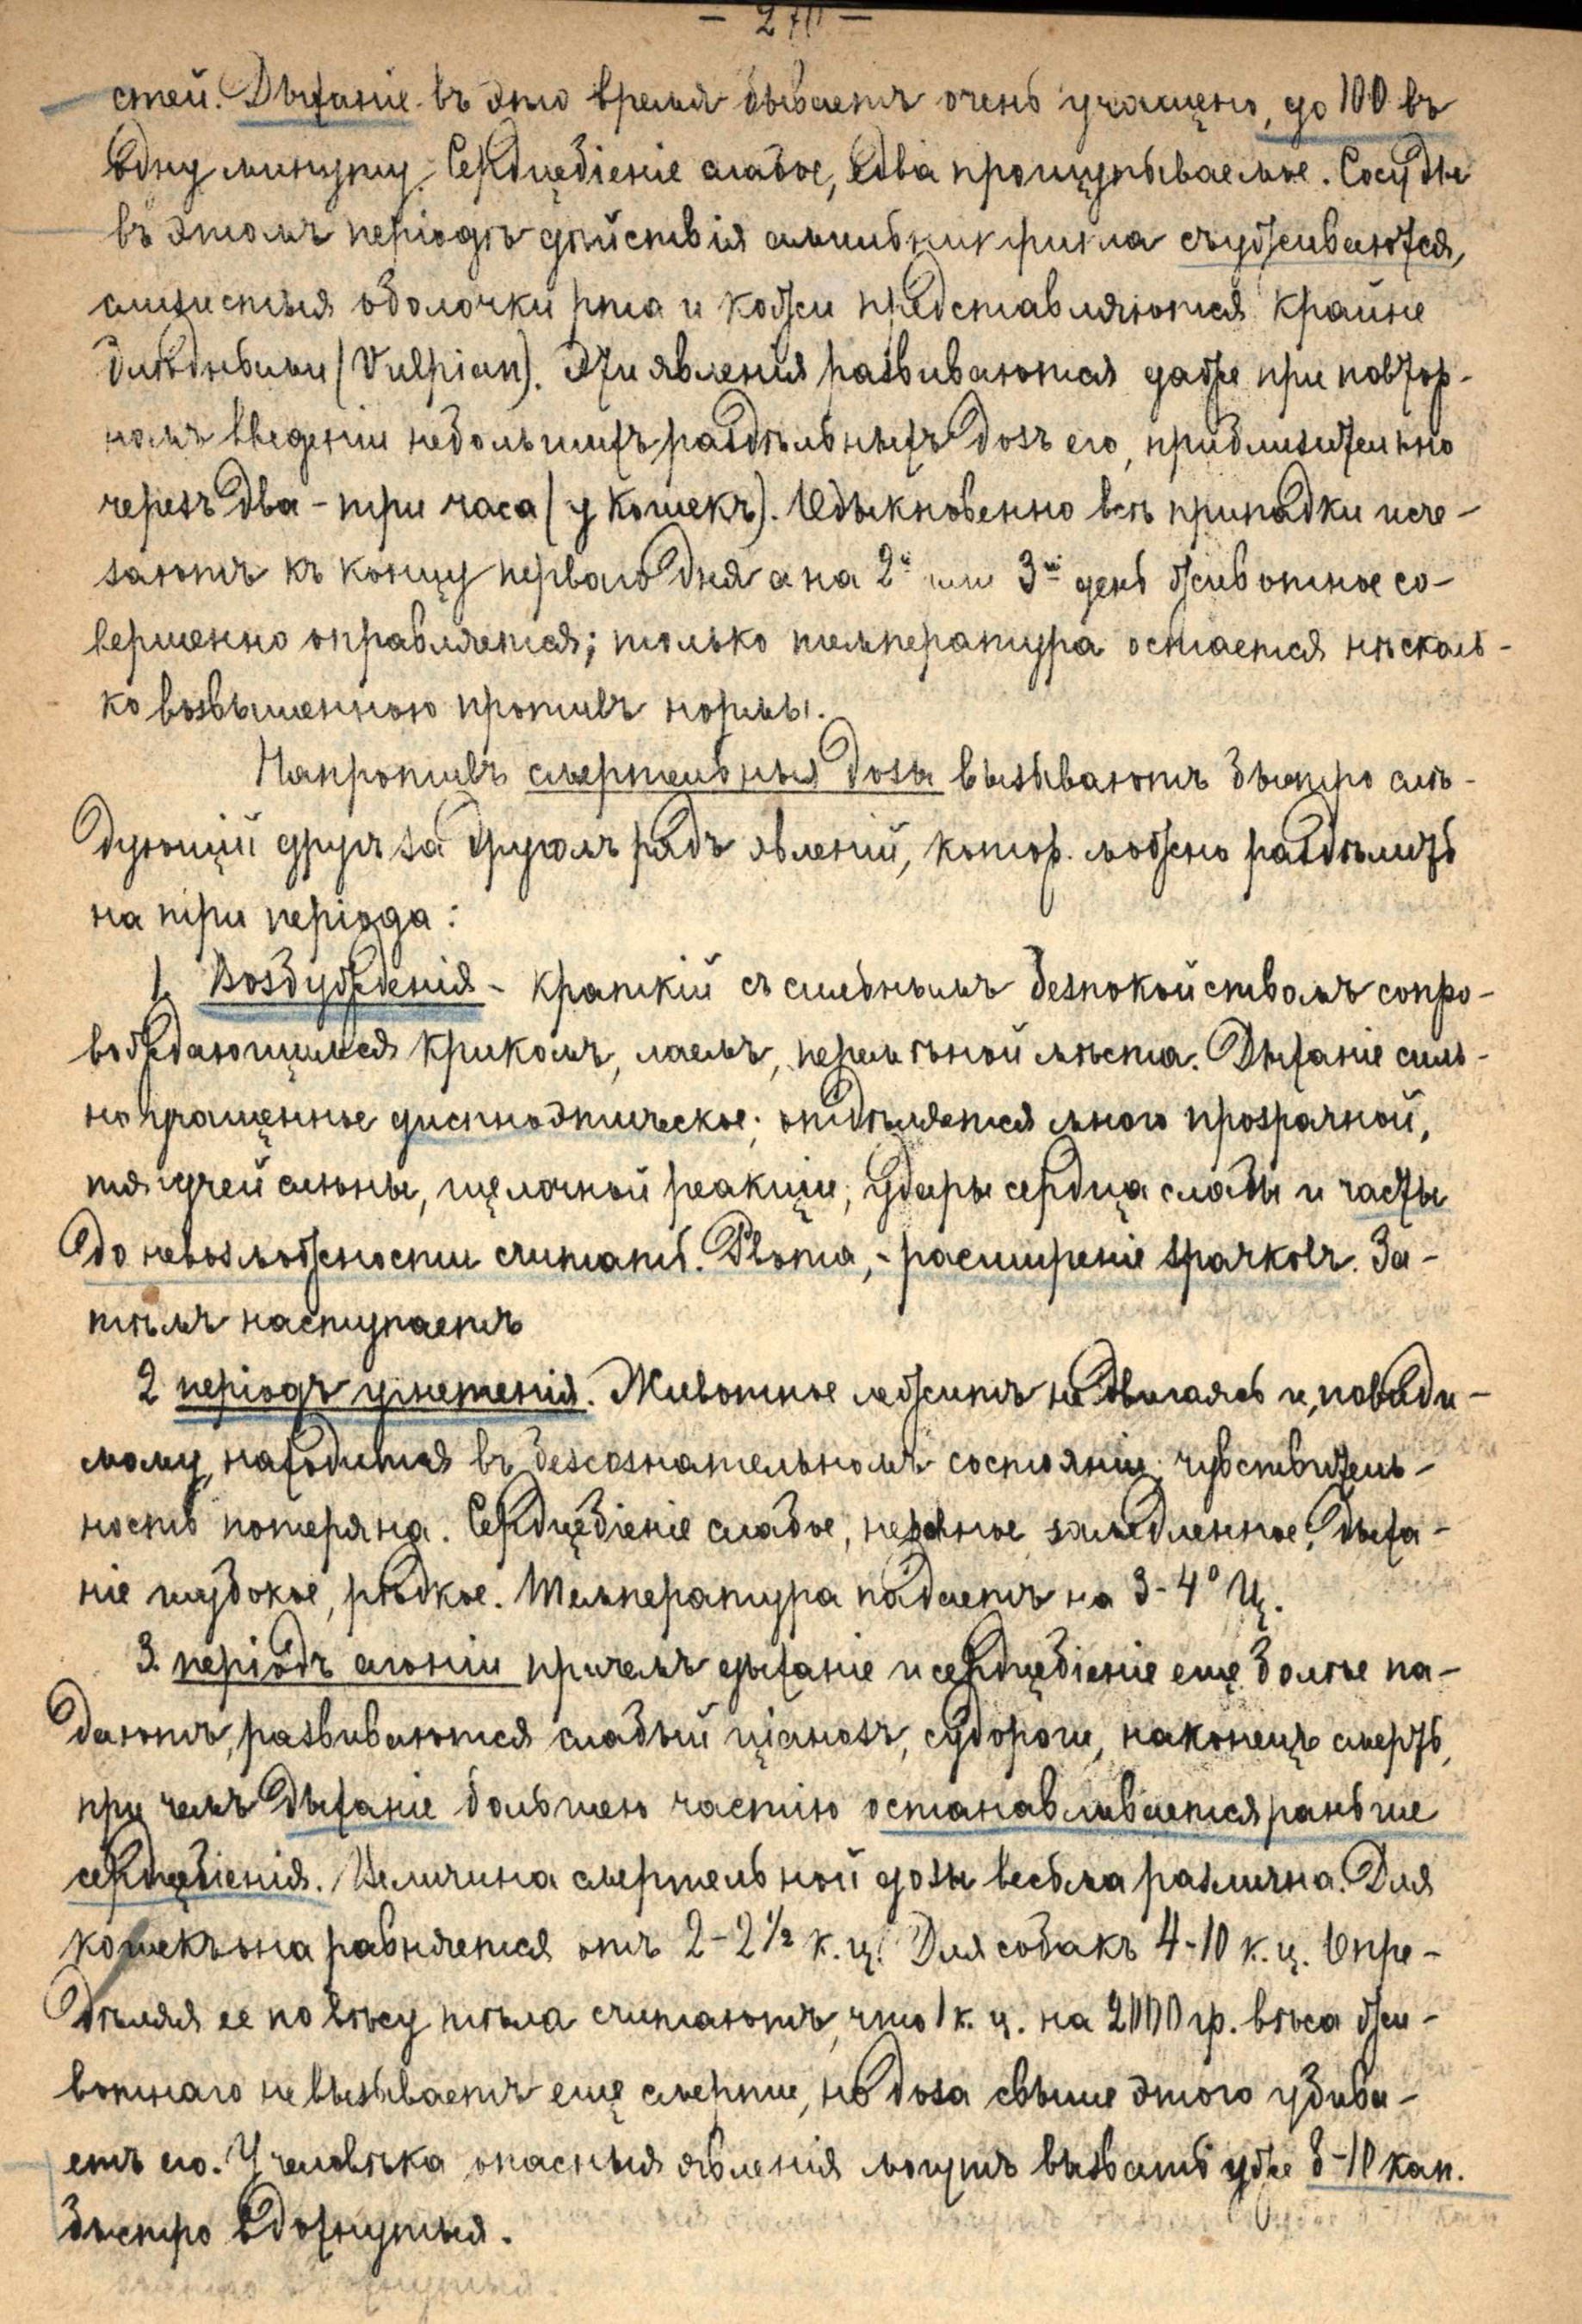 – 270 –
стей. Дыханіе въ это время бываетъ очень учащено, до 100 въ
одну минуту. Сердцебіеніе слабое, едва прощупываемое. Сосуды
въ этомъ періодѣ дѣйствія амилънитрита съуживаются,
слизистыя оболочки рта и кожи представляются крайне
блѣдными (Vulpian). Эти явленія развиваются даже при повтор-
номъ введеніи небольшихъ раздѣльныхъ дозъ его, приблизительно
черезъ два – три часа (у кошекъ). Обыкновенно всѣ припадки исче-
заютъ къ концу перваго дня а на 2й или 3й день животное со-
вершенно оправляется; только температура остается нѣсколь-
ко возвышенною противъ нормы.
Напротивъ смертельныя дозы вызываютъ быстро слѣ-
дующій другъ за другомъ рядъ явленій, котор. можно раздѣлить
на три періода:
1. Возбужденія – краткій съ сильнымъ безпокойствомъ сопро-
вождающимся крикомъ, лаемъ, перемѣной мѣста. Дыханіе силь-
но учащенное диспноэтическое; отдѣляется много прозрачной,
тягучей слюны, щелочной реакціи; удары сердца слабы и часты
до невозможности считать. Рвота, – расширеніе зрачковъ. За-
тѣмъ наступаетъ
2 періодъ угнетенія. Животное лежитъ не двигаясь и, повиди-
мому, находится въ безсознательномъ состояніи; чувствитель-
ность потеряна. Сердцебіеніе слабое, неясное замедленное; дыха-
ніе глубокое, рѣдкое. Температура падаетъ на 3–4° Ц.
3. періодъ агоніи причемъ дыханіе и сердцебіеніе еще болѣе па-
даютъ, развиваются слабый ціанозъ, судороги, наконецъ смерть,
при чемъ дыханіе большею частію останавливается раньше
сердцебіенія. Величина смертельной дозы весьма различна. Для
кошекъ она равняется отъ 2–2½ к.ц. Для собакъ 4–10 к.ц. Опре-
дѣляя ее по вѣсу тѣла считаютъ, что 1 к.ц. на 2000 гр. вѣса жи-
вотнаго не вызываетъ еще смерти, но доза свыше этого убива-
етъ его. У человѣка опасныя явленія могутъ вызвать уже 8–10 кап.
быстро вдохнутыя.